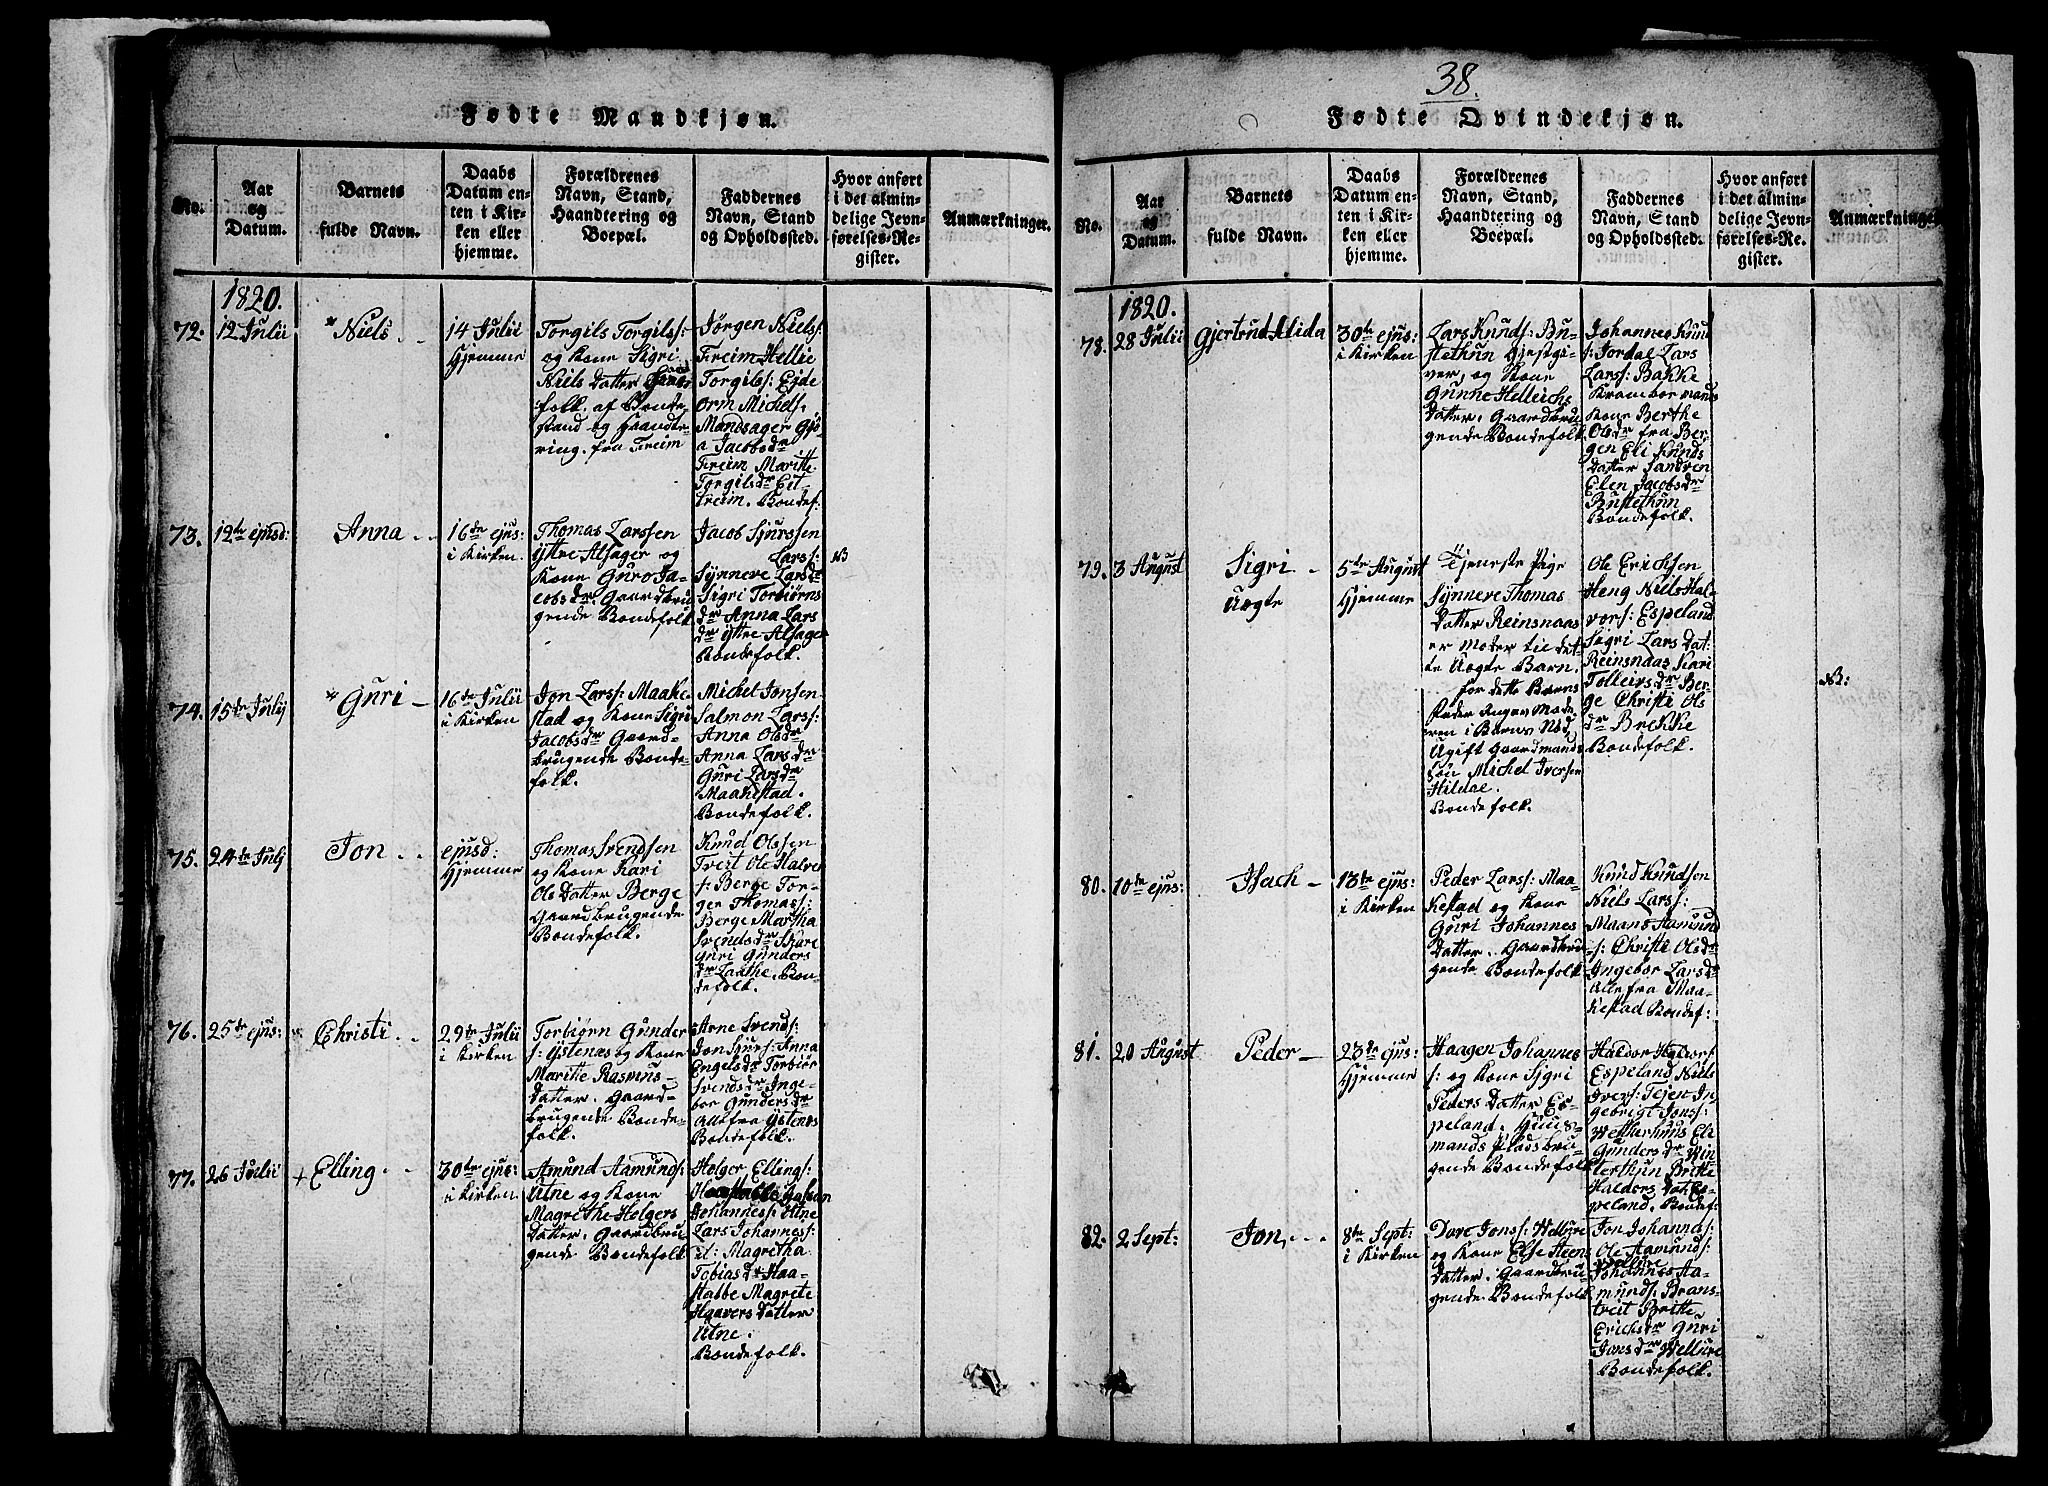 38.
Fødte Mandkjøn.
No.
Aar
og
Datum.
Barnets
fulde Navn.
Daabs
Datum en-
ten i Kir-
ken eller
hjemme.
Forældrenes
Navn, Stand,
Haandtering og
Boepæl.
Faddernes
Navn, Stand
og Opholdssted.
Hvor anført
i det almin-
delige Jevn-
førelses-Re-
gister.
Anmærkninger.
1820.
72.
12 Julii
Niels
14 Julii
Hjemme
Torgils Torgilss:
og Kone Sigri
Niels Datter
folk af Bonde
stand og Haandte-
ring. fra Freim
Jørgen Nielss:
Freim Hellie
Torgilss: Ejde
Orm Michels.
Mandsager Gjø
a Jacobsdr
Freim Maritte
Torgilsdr Eit-
treim. Bondef:
73.
12te ejusd:
Anna
16de ejus:
i Kirken.
Thomas Larssen
ystre Alsager og
Kone Guro Ja-
cobsdr. Gaardbru
gende Bondefolk
Jacob Sjurssen
Larss:
Synneve Larsdr
Sigri Torbiørns
dr Anna Lars
dr ystre Alsager
Bondefolk.
NB
74.
15de Julij
Guri
16de Julii
i Kirken
Jon Larss: Maake-
stad og Kone Sigri
Jacobsdr Gaard-
brugende Bonde-
folk.
Michel Jonsen
Salmon Larss:
Anna Olsdr
Anna Larsdr
Guri Larsdr
Maakestad.
Bondefolk.
75.
24de Julj
Jon
ejusd:
Hjemme
Thomas Svendsen
og Kone Kari
Ols Datter Berge
Gaardbrugende
Bondefolk.
Knud Olssen
Tveit Ole Halvor
s: Berge Tor-
ger Thomass:
Berge Martha
Svendsdr Skare
Guri Gunders
dr Laathe. Bon-
defolk.
76.
25de ejus:
Christi
29de Julii
i Kirken
Torbiørn Gunder
s: Ystenes og Kone
Marithe Rasmus-
Datter. Gaard-
brugende Bonde-
folk.
Arne Svends:
Jon Sjurs: Anna
Engelsdr Torbiør
Svendsdr Inge-
bor Gundersdr
Alle fra Ystenes
Bondefolk.
77.
26 Julii
+ Elling
30te ejus:
i Kirken
Amund Aamunds:
Utne og Kone
Magrethe Holgers
Datter. Gaardbru
gende Bondefolk
Holger Ellings:
Johanness: Utne
Lars Johanness:
it: Magretha
Tobias dr Haa-
stabbe Magrete
Hgavers Datter
Utne.
Bondefolk.
Fødte Qvindekjøn.
No.
Aar
og
Datum.
Barnets
fulde Navn.
Daabs
Datum en-
ten i Kir-
ken eller
hjemme.
Forældrenes
Navn, Stand,
Haandtering og
Boepæl.
Faddernes
Navn, Stand
og Opholdssted.
Hvor anført
i det almin-
delige Jevn-
førelses-Re-
gister.
Anmærkninger
1820.
78.
28 Julii
Gjertrud Alida
30te ejus:
i Kirken
Lars Knuds: Bu-
stethun Gjestgi-
ver, og Kone
Gunne Helleichs
Datter. Gaardbru
gende Bondefolk
Johannes Knud
s: Jordal Lars
Larss: Bakke
Krambormands
Kone Berthe
Olsdr fra Ber-
gen Eli Knuds
Datter Sandven
Elen Jacobsdr
Bustethun
Bondefolk.
79.
3 August
Sigri
Uægte
5te August
Hjemme
Tjeneste Pige
Synneve Thomas
Datter Reinsnaas
er Moder til det-
te Uægte Barn.
for dette Barns
Fader angav Mode
ren i Barns Nød,
Ugift Gaardmands
Søn Michel Iversen
Hildae.
Bondefolk.
Ole Erichsen
Heng Niels Hal-
vors: Espeland
Sigri Lars Dat:
Reinsnaas Kari
Tolleivsdr Ber-
ge Christi Ols
dr Brekke
Bondefolk.
NB:
80.
10de ejus:
Isach
13de ejus:
i Kirken
Peder Larss: Maa-
kestad og Kone
Guri Johannes
Datter. Gaardbru
gende Bondefolk
Knud Knudsen
Niels Larss:
Maans Aamund
s: Christi Olsdr
Ingebor Larsdr
Alle fra Maa-
kestad Bondef:
81.
20 August
Peder
23de ejus:
Hjemme
Haagen Johannes
s: og Kone Sigri
Peders Datter Es-
peland. Huus-
mands Pladsbru-
gende Bondefolk
Haldor Haldors
Espeland Niels
Ivers: Tejen In
gebrigt Jons:
Wetterhuus Eli
Gundersdr Win-
terthun Britte
Haldors Dat: Es-
peland. Bondef:
82.
2 Sept:
Jon
8de Sept:
i Kirken
Dave Jons: Hellure
og Kone Else Steens
Datter. Gaardbru-
gende Bondefolk
Jon Johanns:
Ole Aamunds:
Hellure
Johannes Aa-
munds: Brans-
tveit Britte
Erichsdr Guri
Jonsdr Hellure
Bondefolk.